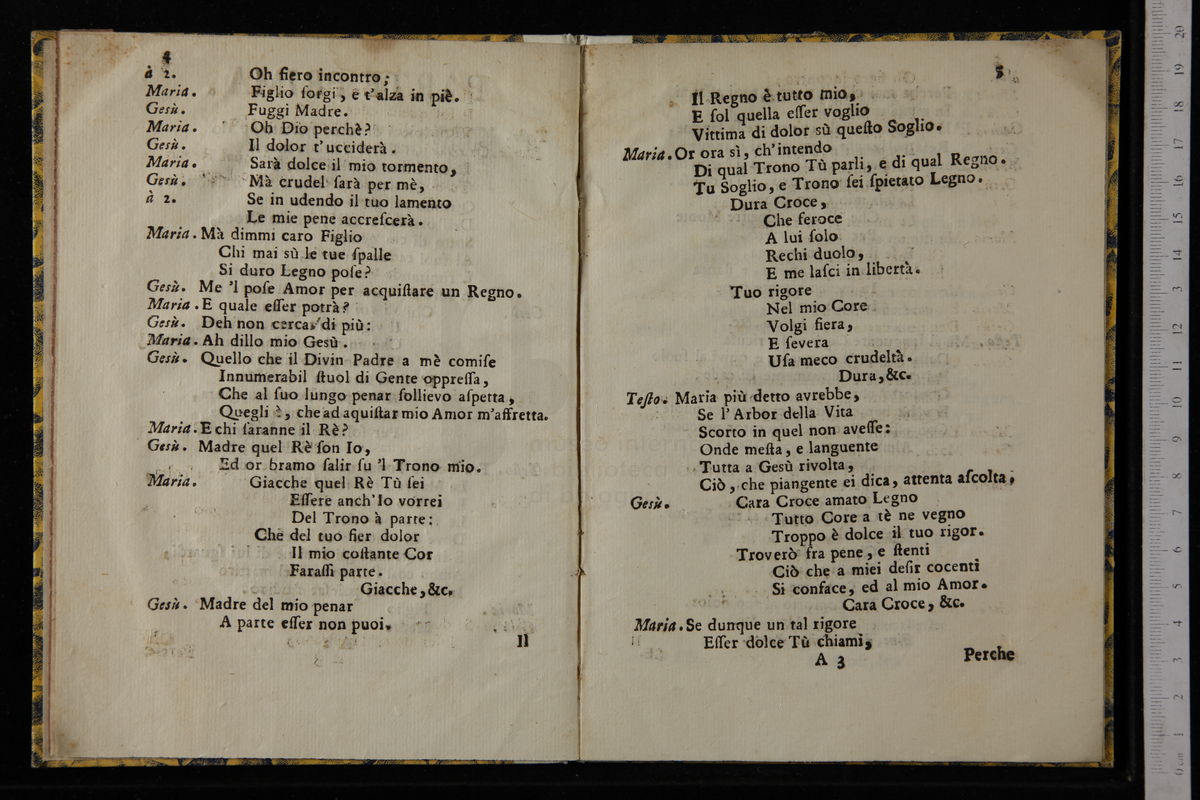 4
à 2. Oh fiero incontro;
Maria. Figlio ſorgi, e t'alza in piè.
Gesù. Fuggi Madre.
Maria. Oh Dio perchè?
Gesù. Il dolor t'ucciderà.
Maria. Sarà dolce il mio tormento,
Gesù. Mà crudel ſarà per mè,
à 2. Se in udendo il tuo lamento
Le mie pene accreſcerà.
Maria. Mà dimmi caro Figlio
Chi mai sù le tue ſpalle
Si duro Legno poſe?
Gesù. Me 'l poſe Amor per acquiſtare un Regno.
Maria. E quale eſſer potrà?
Gesù. Deh non cercar di più:
Maria. Ah dillo mio Gesù.
Gesù. Quello che il Divin Padre a mè comiſe
Innumerabil ſtuol di Gente oppreſſa,
Che al ſuo lungo penar ſollievo aſpetta,
Quegli è, che ad aquiſtar mio Amor m'affretta.
Maria. E chi ſaranne il Rè?
Gesù. Madre quel Rè ſon Io,
Ed or bramo ſalir ſu 'l Trono mio.
Maria. Giacche quel Rè Tù ſei
Eſſere anch'Io vorrei
Del Trono à parte:
Che del tuo fier dolor
Il mio coſtante Cor
Faraſſi parte.
Giacche, &c.
Gesù. Madre del mio penar
A parte eſſer non puoi.
Il
5
Il Regno è tutto mio,
E ſol quella eſſer voglio
Vittima di dolor sù queſto Soglio.
Maria. Or ora sì, ch'intendo
Di qual Trono Tù parli, e di qual Regno.
Tu Soglio, e Trono ſei ſpietato Legno.
Dura Croce,
Che feroce
A lui ſolo
Rechi duolo,
E me laſci in libertà.
Tuo rigore
Nel mio Core
Volgi fiera,
E ſevera
Uſa meco crudeltà.
Dura, &c.
Teſto. Maria più detto avrebbe,
Se l'Arbor della Vita
Scorto in quel non aveſſe:
Onde meſta, e languente
Tutta a Gesù rivolta,
Ciò, che piangente ei dica, attenta aſcolta,
Gesù. Cara Croce amato Legno
Tutto Core a tè ne vegno
Troppo è dolce il tuo rigor.
Troverò fra pene, e ſtenti
Ciò che a miei deſir cocenti
Si conface, ed al mio Amor.
Cara Croce, &c.
Maria. Se dunque un tal rigore
Eſſer dolce Tù chiami,
A 3
Perche